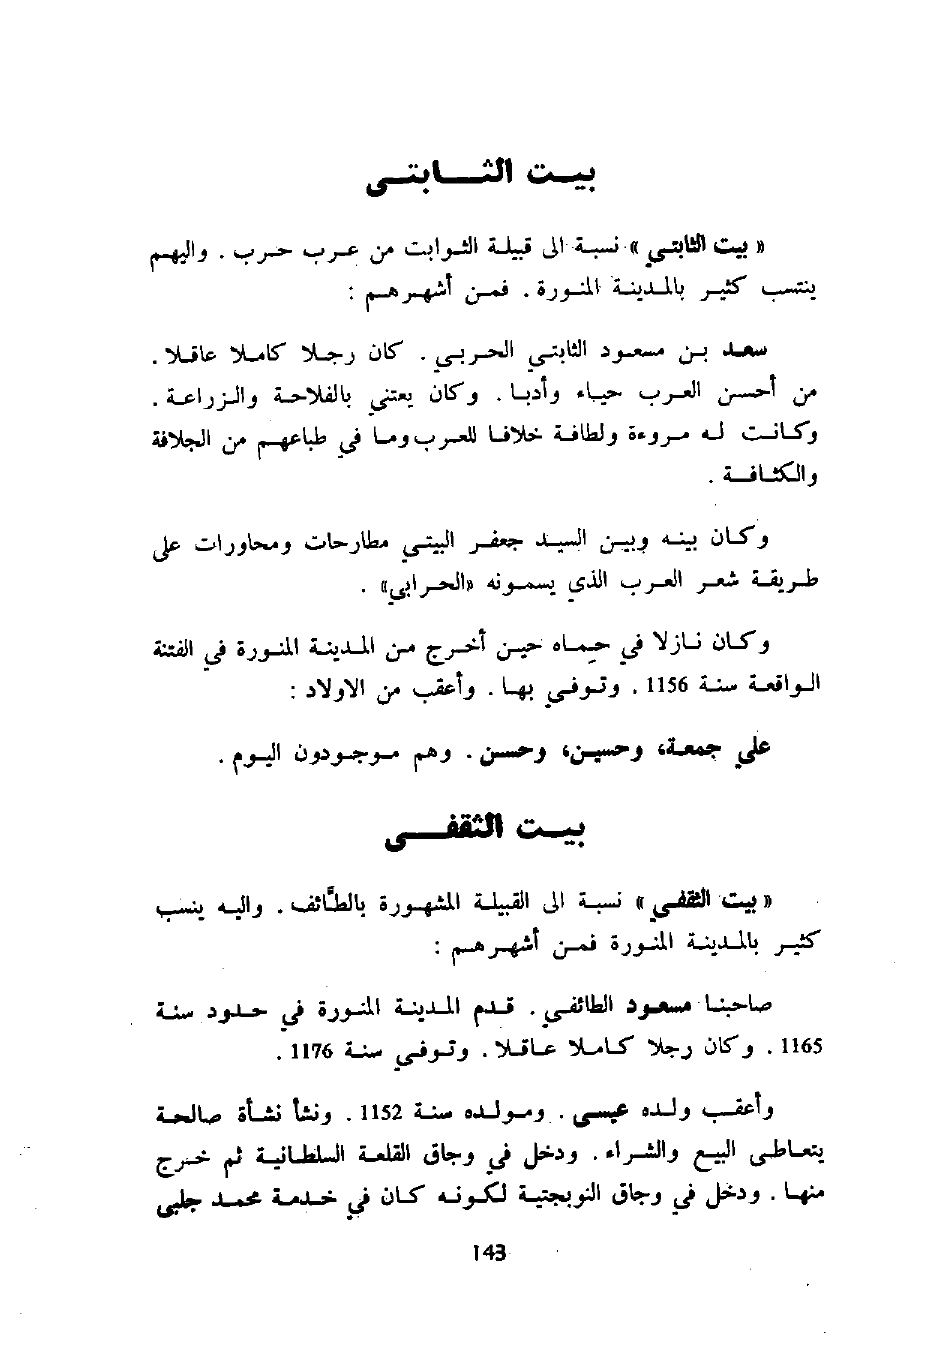 بيت الثابتي
« بيت الثابتي » نسبة الى قبيلة الثوابت من عرب حرب . واليهم
ينتسب كثير بالمدينة المنورة . فمن أشهرهم :
سعد بن مسعود الثابتي الحربي . كان رجلا كاملا عاقلا .
من أحسن العرب حياء وأدبا . وكان يعتني بالفلاحة والزراعة .
وكانت له مروءة ولطافة خلافا للعرب وما في طباعهم من الجلافة
والكثافة .
وكان بينه وبين السيد جعفر البيتي مطارحات ومحاورات على
طريقة شعر العرب الذي يسمونه «الحرابي» .
وكان نازلا في حماه حين أخرج من المدينة المنورة في الفتنة
الواقعة سنة 1156 . وتوفي بها . وأعقب من الاولاد :
علي جمعة، وحسين، وحسن . وهم موجودون اليوم .
بيت الثقفى
« بيت الثقفي » نسبة الى القبيلة المشهورة بالطَّائف . واليه ينسب
كثير بالمدينة المنورة فمن أشهرهم :
صاحبنا مسعود الطائفي . قدم المدينة المنورة في حدود سنة
1165 . وكان رجلا كاملا عاقلا . وتوفي سنة 1176 .
وأعقب ولده عيسى . ومولده سنة 1152 . ونشأ نشأة صالحة
يتعاطى البيع والشراء . ودخل في وجاق القلعة السلطانية ثم خرج
منها . ودخل في وجاق النوبجتية لكونه كان في خدمة محمد جلبى
143